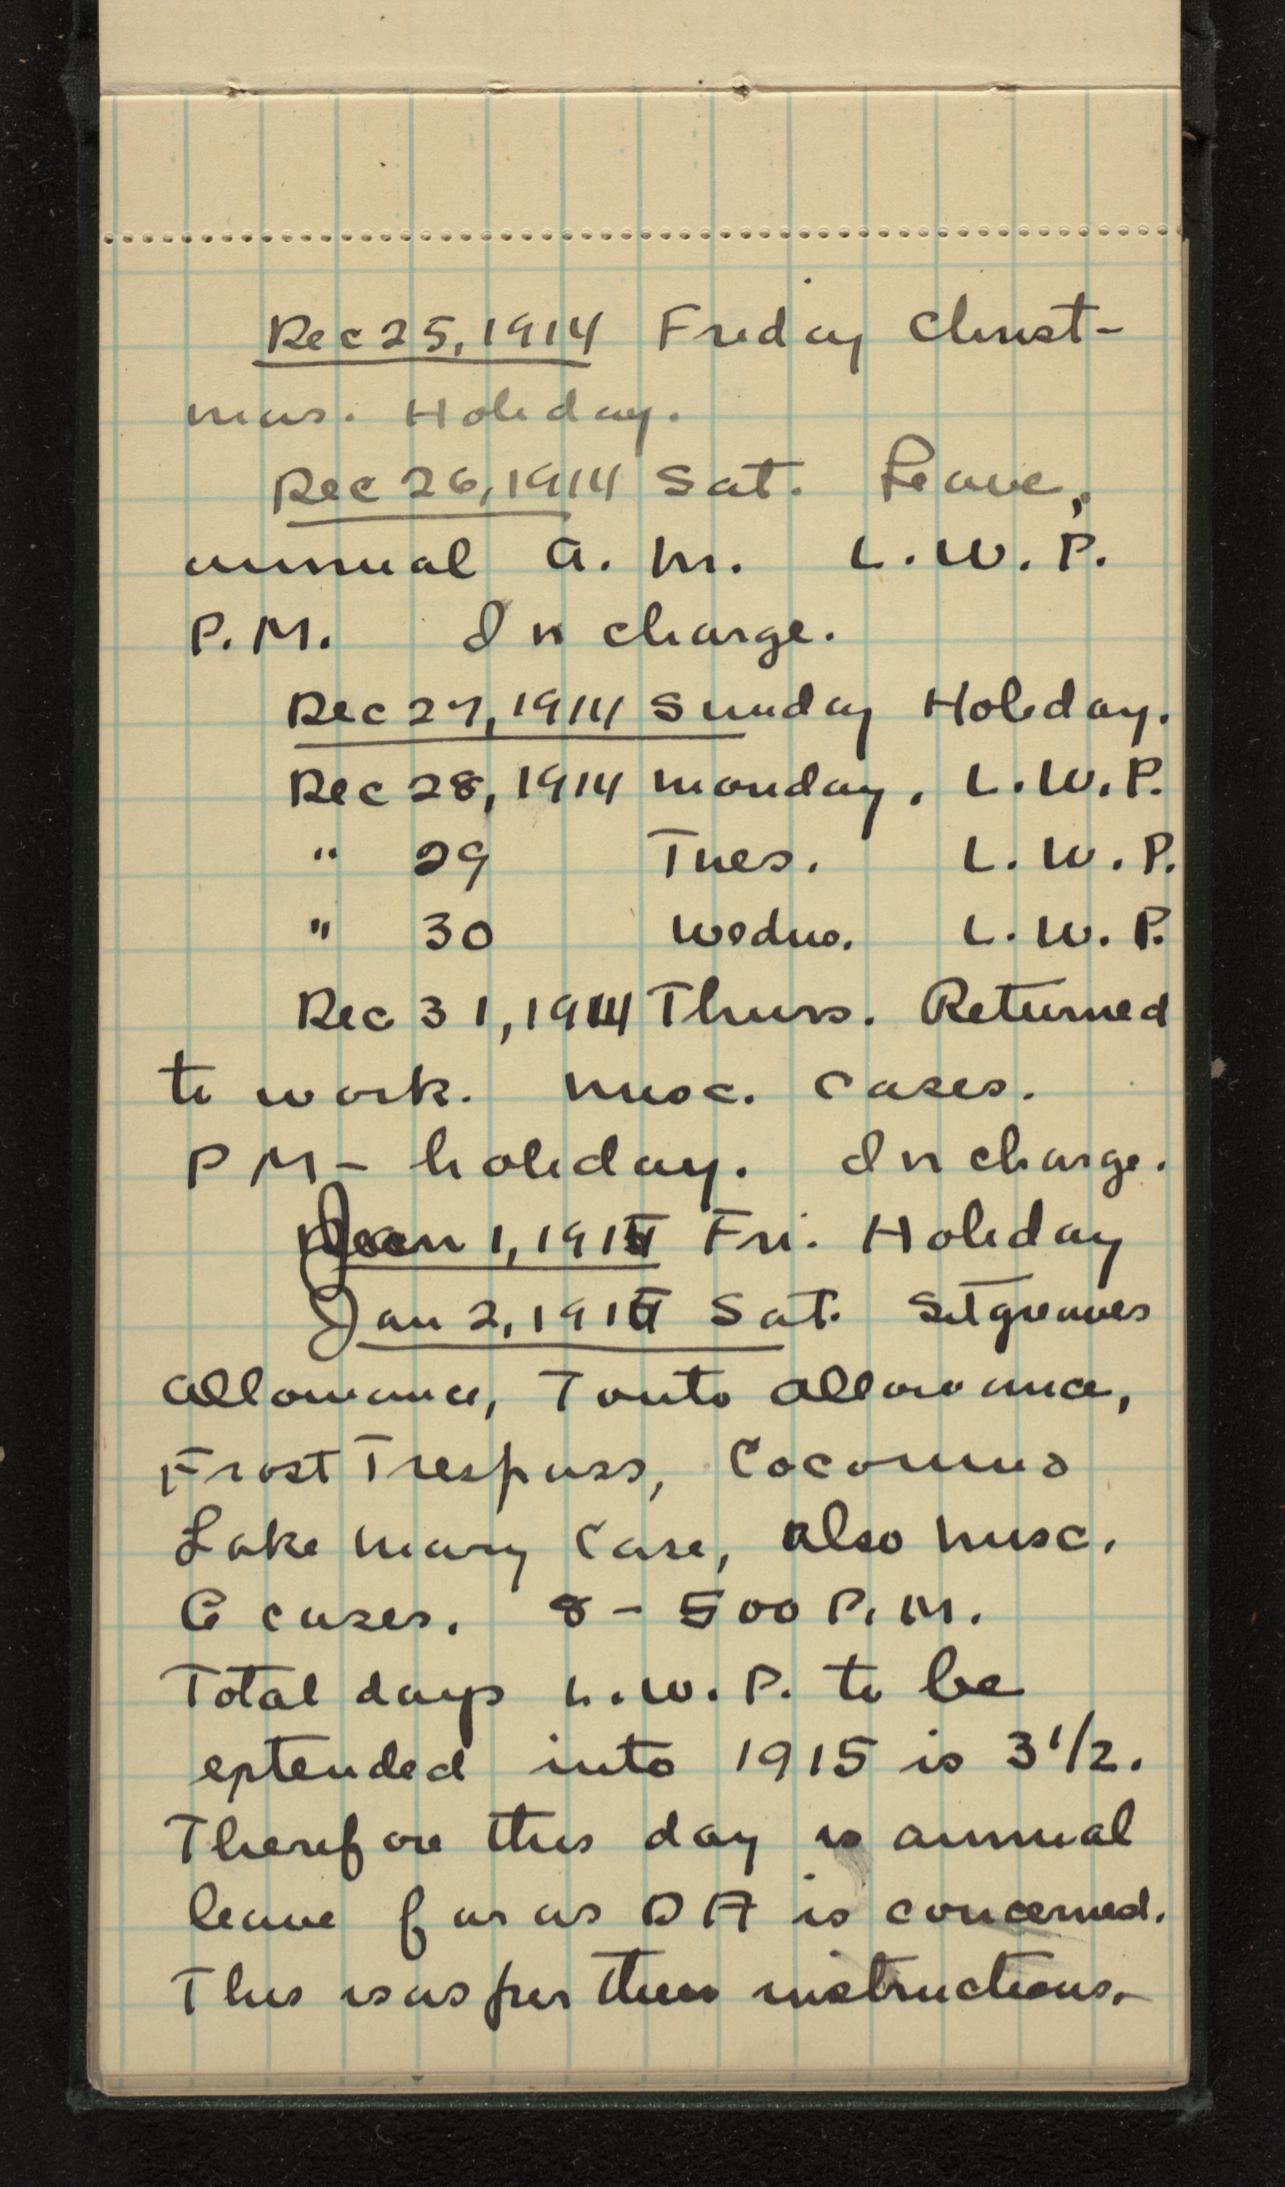 Dec 25, 1914 Friday Christ-
mas. Holiday.
Dec 26, 1914 Sat. Leave,
annual A.M. L.W.P.
P.M. In charge.
Dec 27, 1914 Sunday Holiday.
Dec 28, 1914 Monday, L.W.P.
" 29 Tues. L.W.P.
" 30 Wedns. L.W.P.
Dec 31, 1914 Thurs. Returned
to work. Misc. cases.
PM - holiday. In charge.
Jan 1, 1915 Fri. Holiday
Jan 2, 1915 Sat. Sitgreaves
allowance, Tonto allowance,
Frost Trespass, Coconino
Lake Mary Case, also misc.
G cases. 8 - 500 P.M.
Total days L.W.P. to be
extended into 1915 is 3 1/2.
Therefore this day is annual
leave far as DA is concerned.
This is as per their instructions.